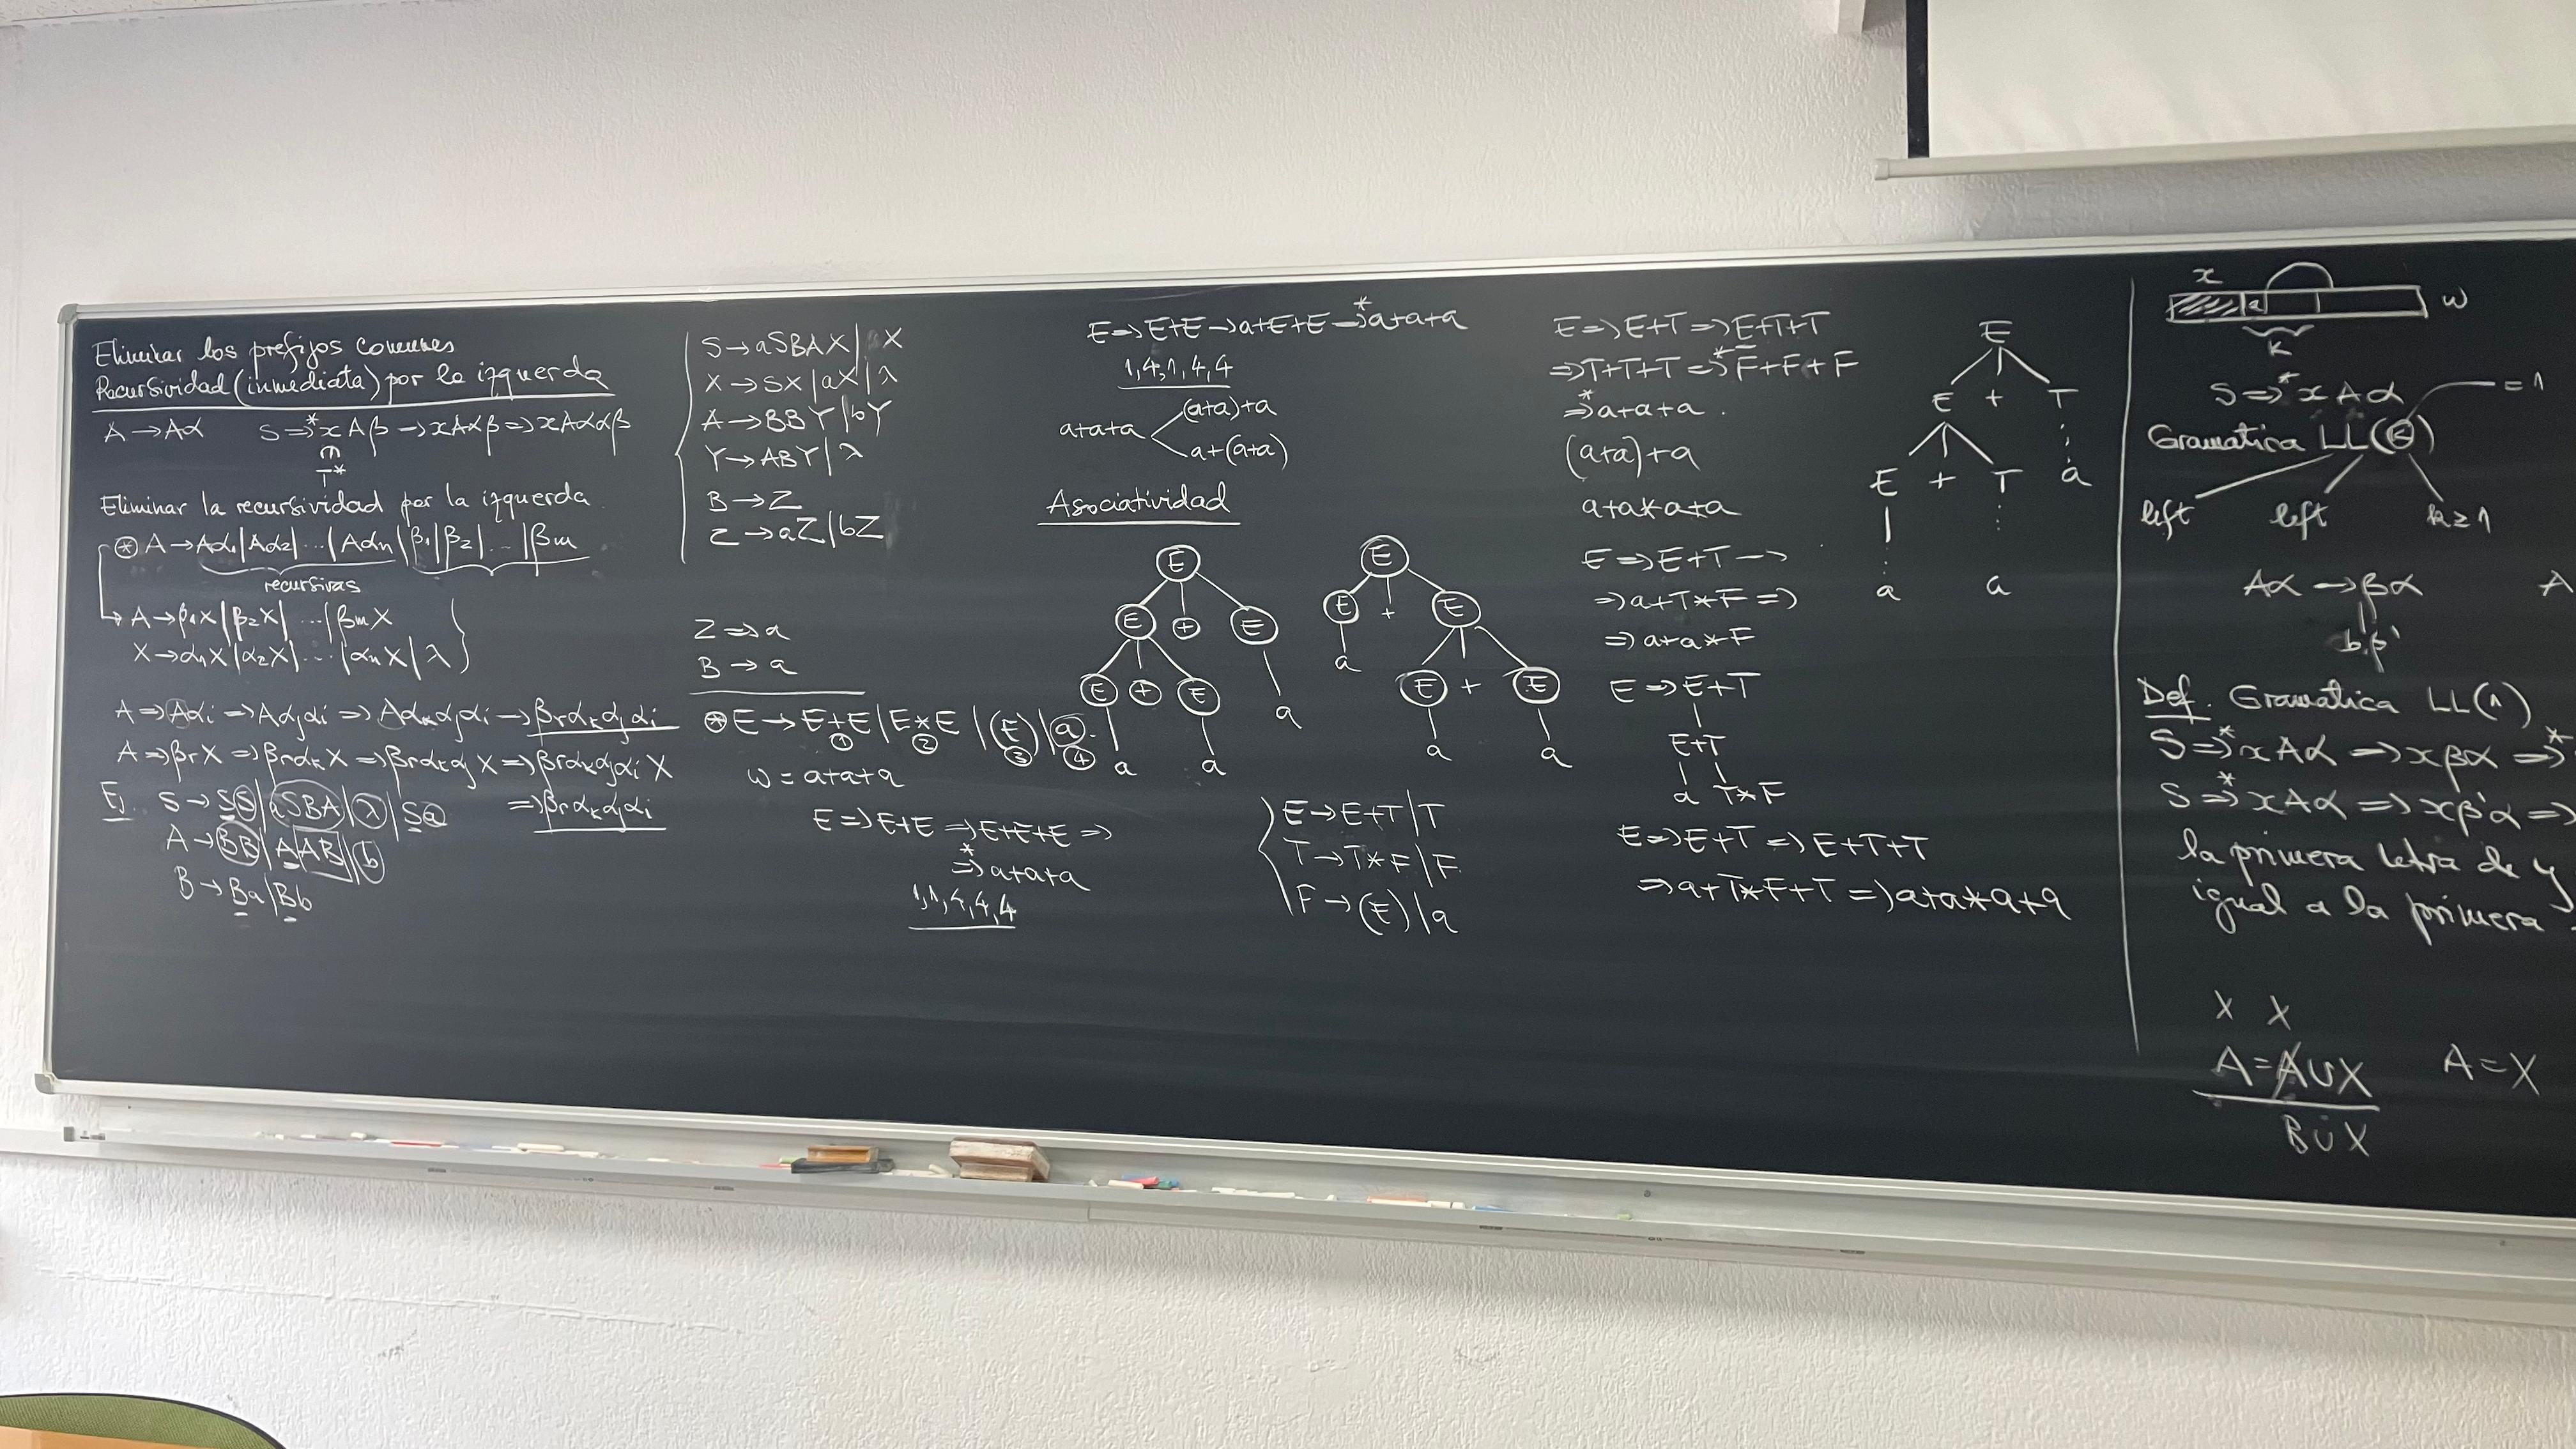 Eliminar los prefijos comunes
Recursividad (inmediata) por la izquierda
A → Aα S ⇒* xAβ → xAαβ ⇒ xAααβ
T*
Eliminar la recursividad por la izquierda
⊛ A → Aα₁|Aα₂|...|Aαn|β₁|β₂|...|βm
recursivas
A → β₁X|β₂X|...|βmX
X → α₁X|α₂X|...|αnX|λ
A ⇒ Aαi ⇒ Aαjαi ⇒ Aαkαjαi → βrαkαjαi
A ⇒ βrX ⇒ βrαkX ⇒ βrαkαjX ⇒ βrαkαjαiX
⇒ βrαkαjαi
Ej. S → SS|aSBA|λ|Sa
A → BB|AAB|b
B → Ba|Bb
S → aSBAX|X
X → SX|aX|λ
A → BBY|bY
Y → ABY|λ
B → Z
Z → aZ|bZ
Z ⇒ a
B → a
⊛ E → E+E|E*E|(E)|a
① ② ③ ④
w = a+a+a
E ⇒ E+E ⇒ E+E+E ⇒
⇒* a+a+a
1,1,4,4,4
E ⇒ E+E → a+E+E →* a+a+a
1,4,1,4,4
a+a+a
(a+a)+a
a+(a+a)
Asociatividad
E
E + E
E + E a
a a
E
E + E
a E + E
a a
E → E+T|T
T → T*F|F
F → (E)|a
E ⇒ E+T ⇒ E+T+T
⇒ T+T+T ⇒* F+F+F
⇒* a+a+a.
(a+a)+a
a+a*a+a
E ⇒ E+T →
⇒ a+T*F ⇒
⇒ a+a*F
E ⇒ E+T
E+T
a T*F
E ⇒ E+T ⇒ E+T+T
⇒ a+T*F+T ⇒ a+a*a+a
E
E + T
E + T a
a a
x a w
K
S ⇒* xAα
Gramatica LL(k) =1
left left k≥1
Aα → βα A
bβ'
Def. Gramatica LL(1)
S ⇒* xAα ⇒ xβα ⇒*
S ⇒* xAα ⇒ xβ'α ⇒
la primera letra de y
igual a la primera
X X
A=A∪X A=X
B∪X